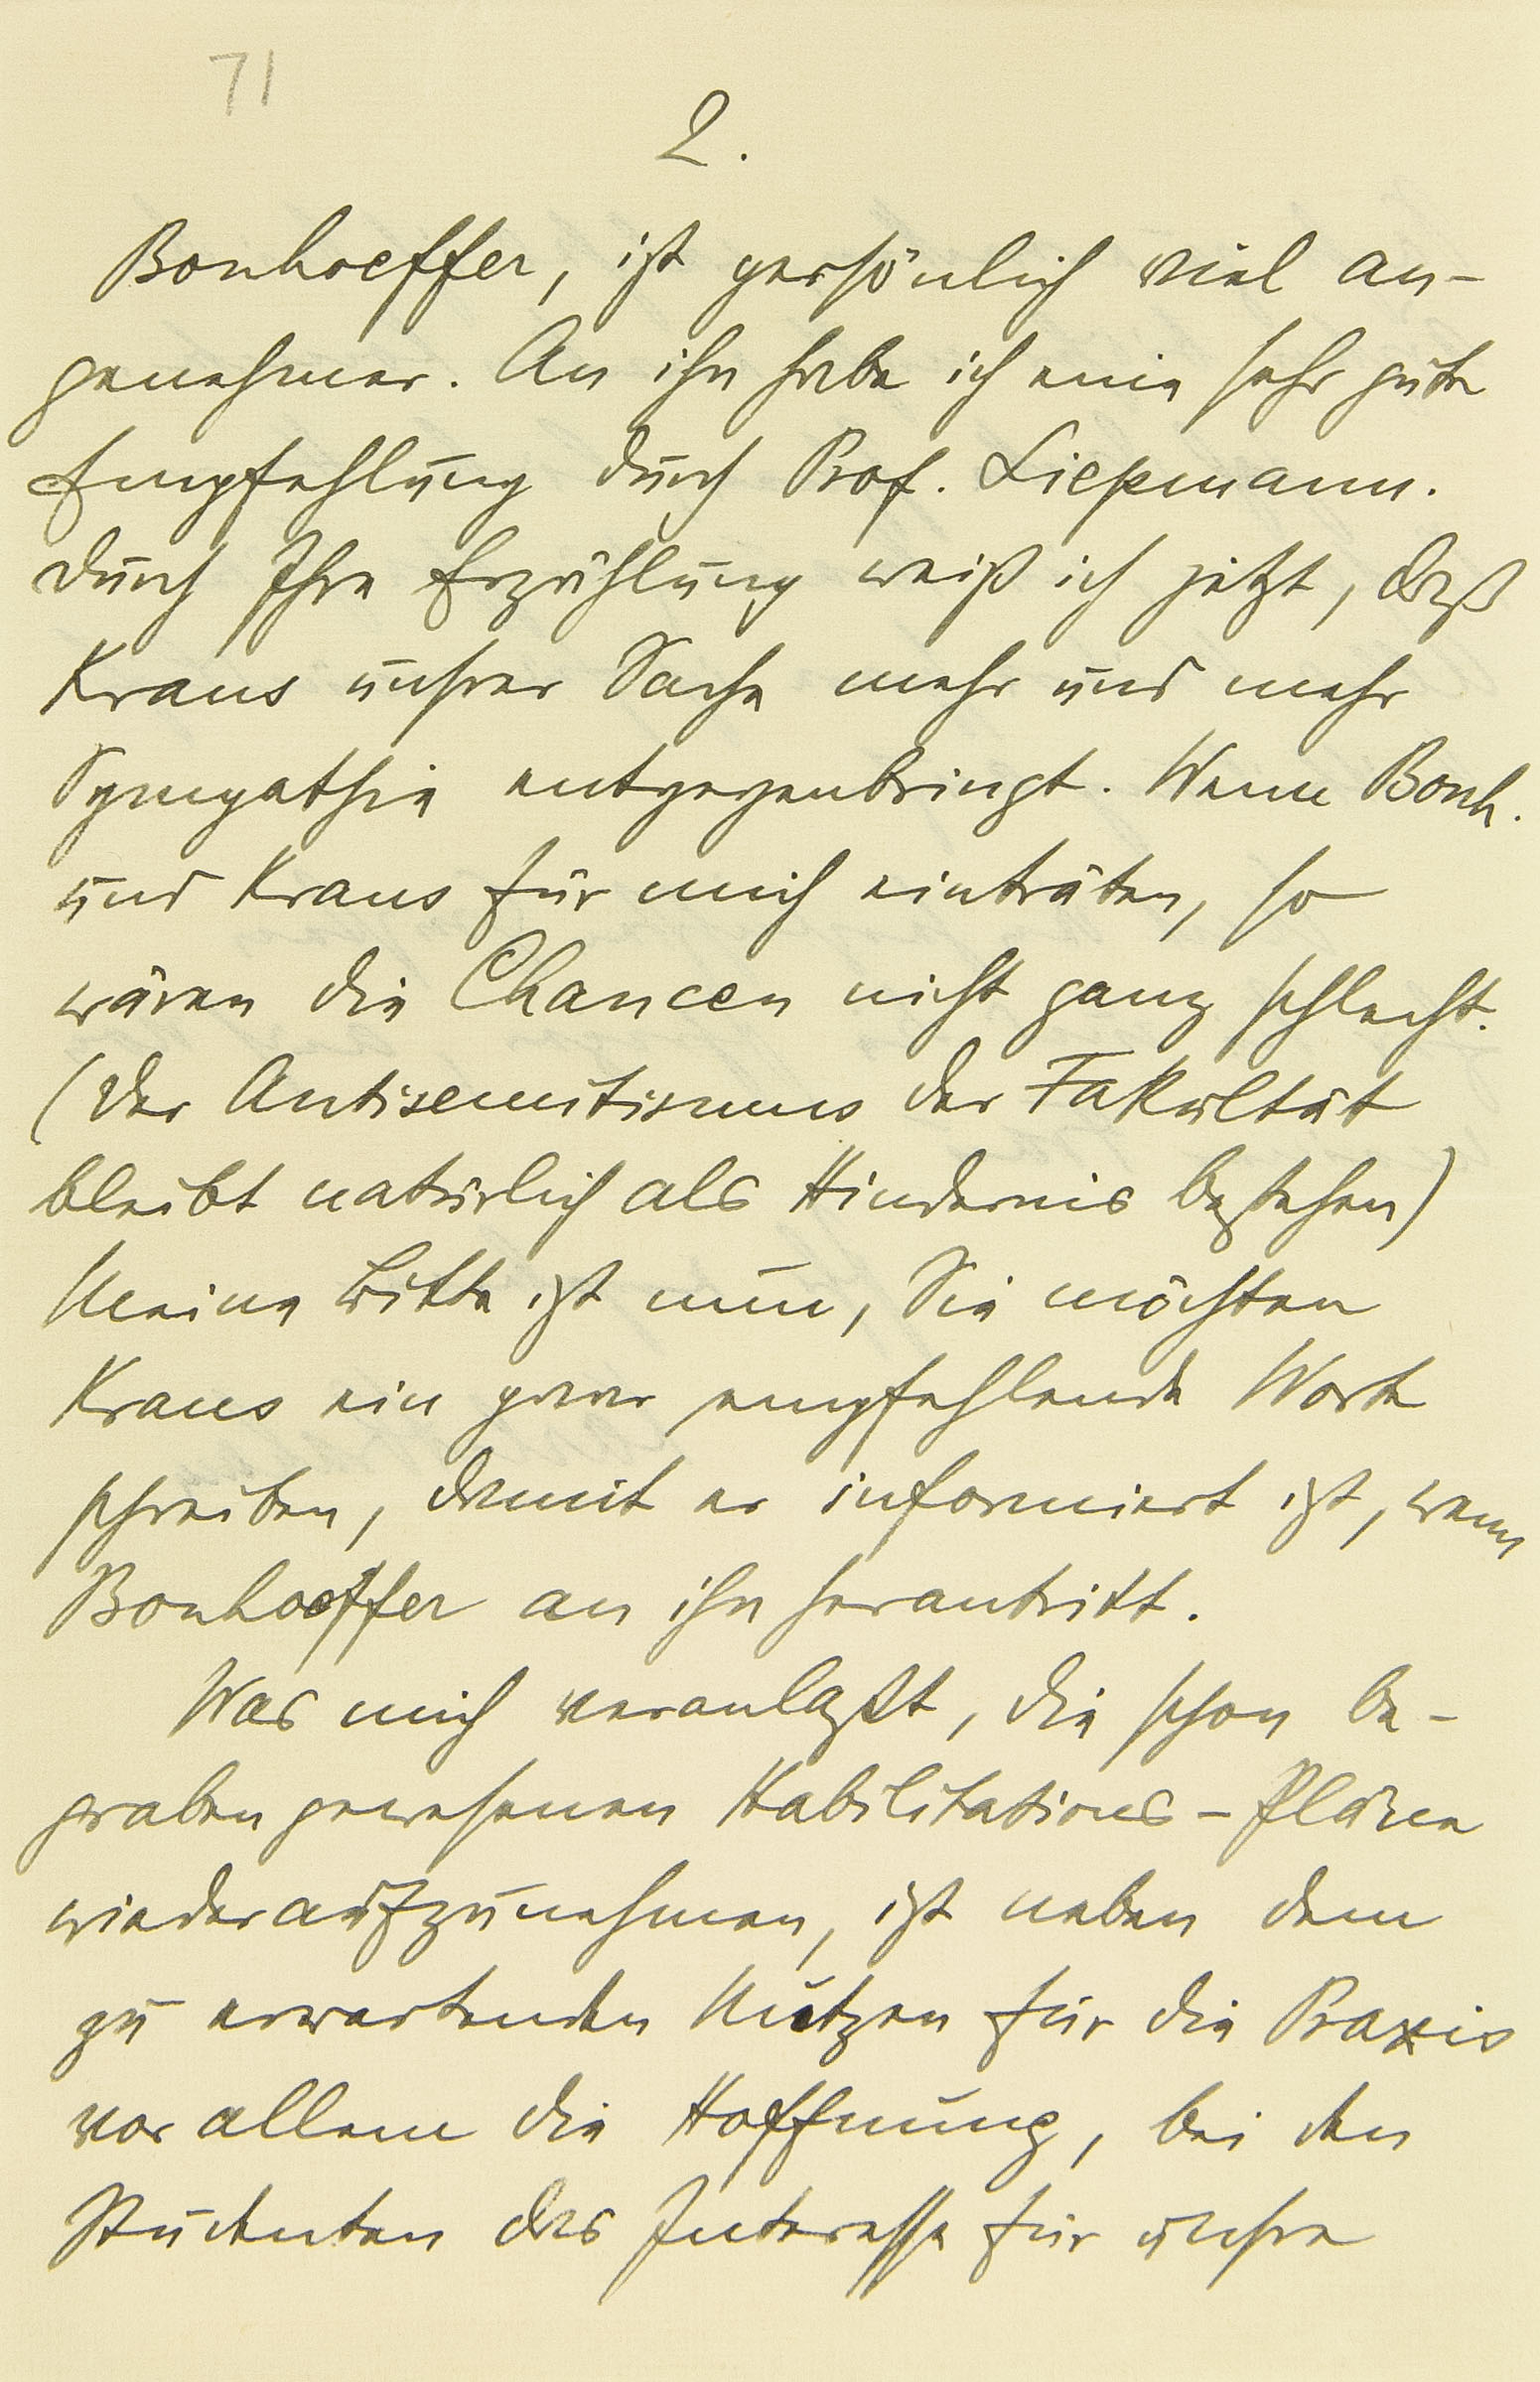 71
2.
Bonhoeffer, ist persönlich viel an-
genehmer. An ihn habe ich eine sehr gute
Empfehlung durch Prof. Liepmann.
Durch Ihre Erzählung weiß ich jetzt, daß
Kraus unsrer Sache mehr und mehr
Sympathie entgegenbringt. Wenn Bonh.
und Kraus für mich einträten, so
wären die Chancen nicht ganz schlecht.
(Der Antisemitismus der Fakultät
bleibt natürlich als Hindernis bestehen)
Meine Bitte ist nun, Sie möchten
Kraus ein paar empfehlende Worte
schreiben, damit er informiert ist, wenn
Bonhoeffer an ihn herantritt.
Was mich veranlaßt, die schon be-
graben gewesenen Habilitations-Pläne
wiederaufzunehmen, ist neben dem
zu erwartenden Nutzen für die Praxis
vor allem die Hoffnung, bei den
Studenten das Interesse für unsre